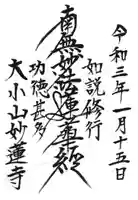 令和三年一月十五日
如説修行
南無妙法蓮華経
功徳甚多
大小山妙蓮寺